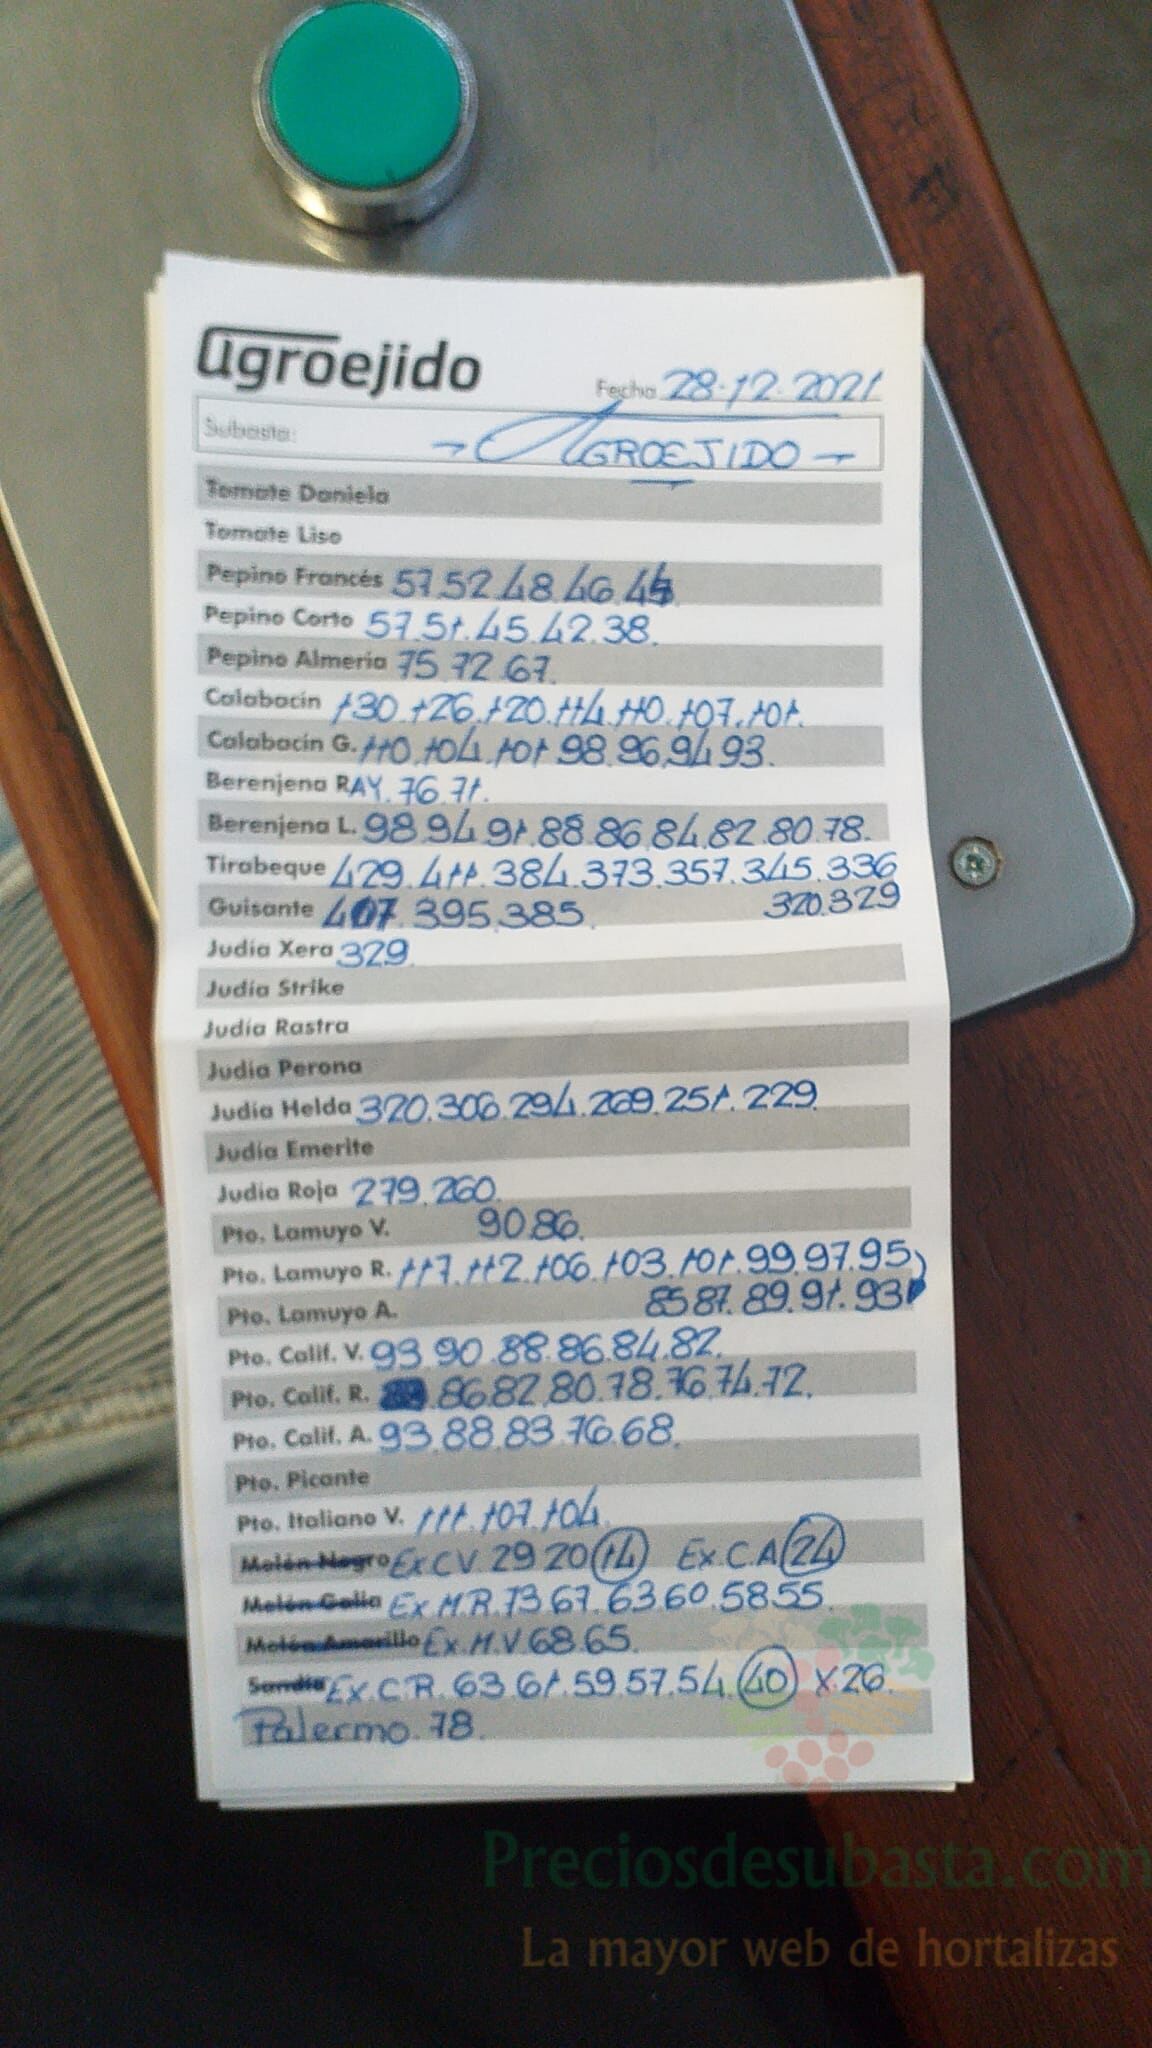 agroejido
Fecha 28-12-2021
Subasta: → AGROEJIDO →
Tomate Daniela
Tomate Liso
Pepino Francés 57.52.48.46.45
Pepino Corto 57.51.45.42.38.
Pepino Almería 75.72.67.
Calabacín 130.126.120.114.110.107.101.
Calabacín G. 110.104.101.98.96.94.93.
Berenjena RAY. 76.71.
Berenjena L. 98.94.91.88.86.84.82.80.78.
Tirabeque 429.411.384.373.357.345.336
320.329
Guisante 407.395.385.
Judía Xera 329
Judía Strike
Judía Rastra
Judía Perona
Judía Helda 320.306.294.269.251.229
Judía Emerite
Judía Roja 279.260.
Pto. Lamuyo V. 90.86.
Pto. Lamuyo R. 117.112.106.103.101.99.97.95
85.87.89.91.93
Pto. Lamuyo A.
Pto. Calif. V. 93.90.88.86.84.82.
Pto. Calif. R. 86.82.80.78.76.74.72.
Pto. Calif. A. 93.88.83.76.68.
Pto. Picante
Pto. Italiano V. 111.107.104.
Melón Negro Ex.C.V. 29.20 14 Ex.C.A 24
Melón Galia Ex.M.R. 73.67.63.60.58.55.
Melón Amarillo Ex.M.V 68.65.
Sandía Ex.C.R. 63.61.59.57.54. 40 X26.
Palermo. 78.
Preciosdesubasta.com
La mayor web de hortalizas